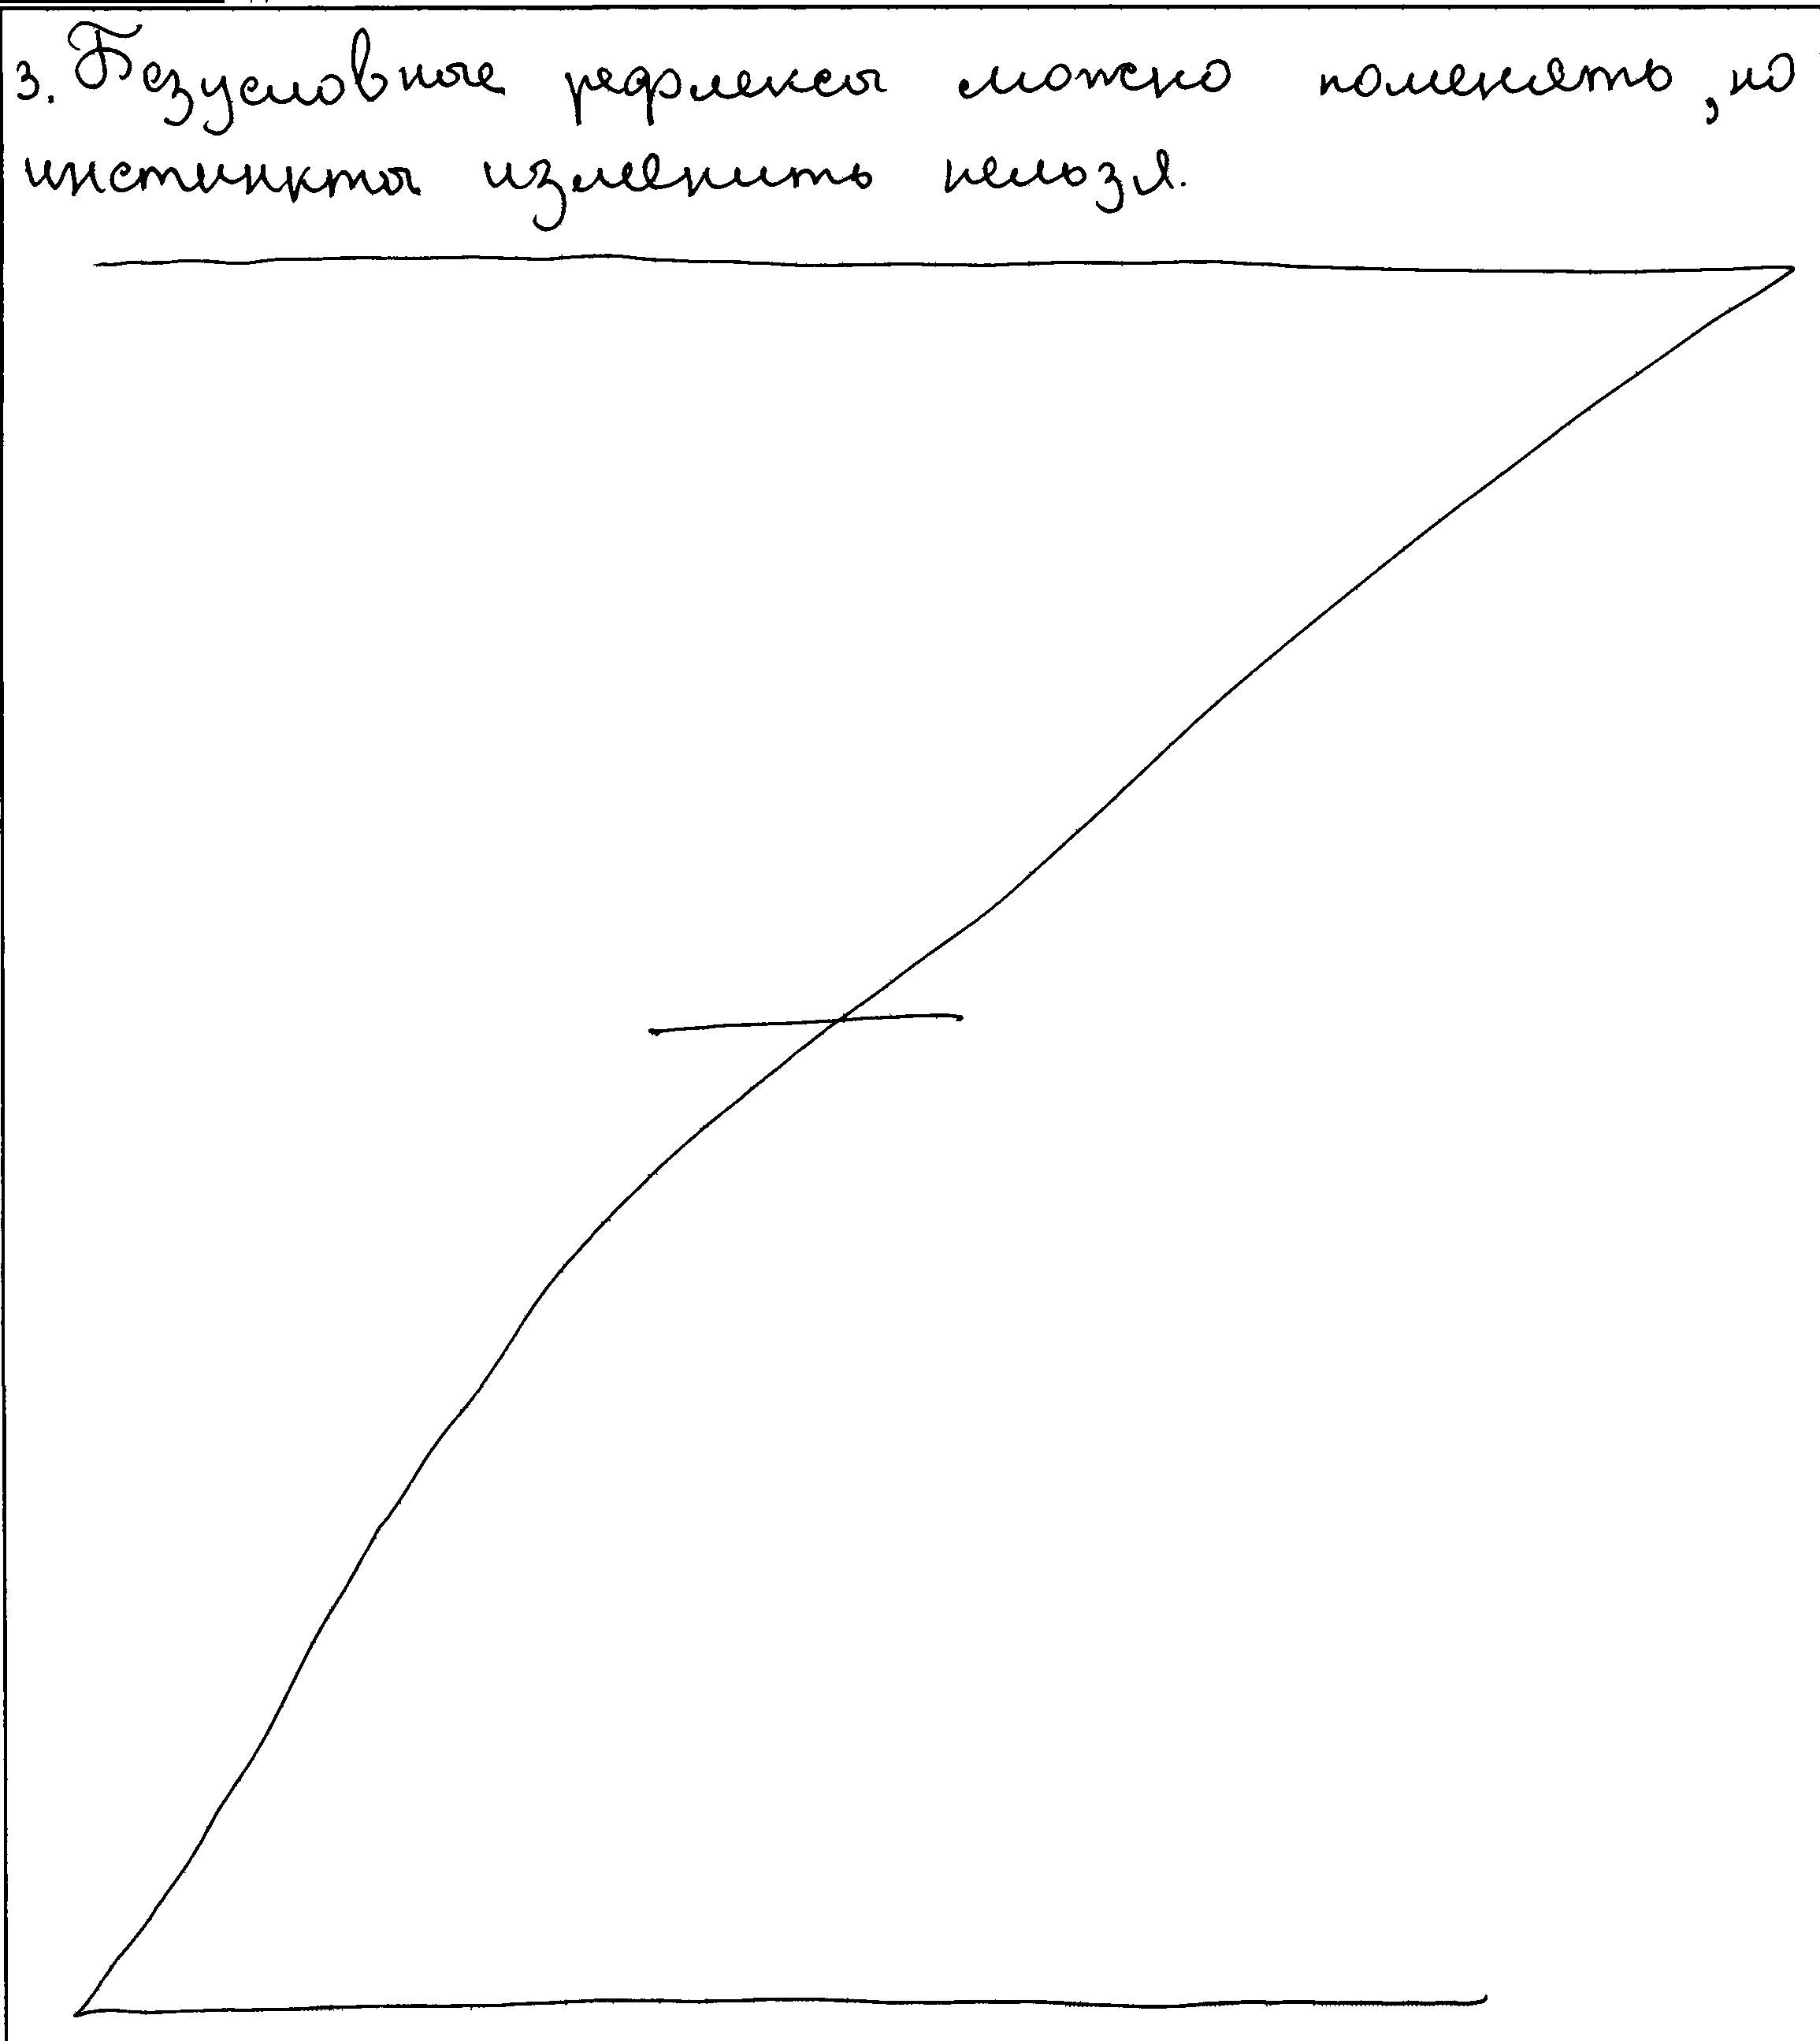 3. Безусловные рефлексы можно поменять, но
инстинкты изменить нельзя.